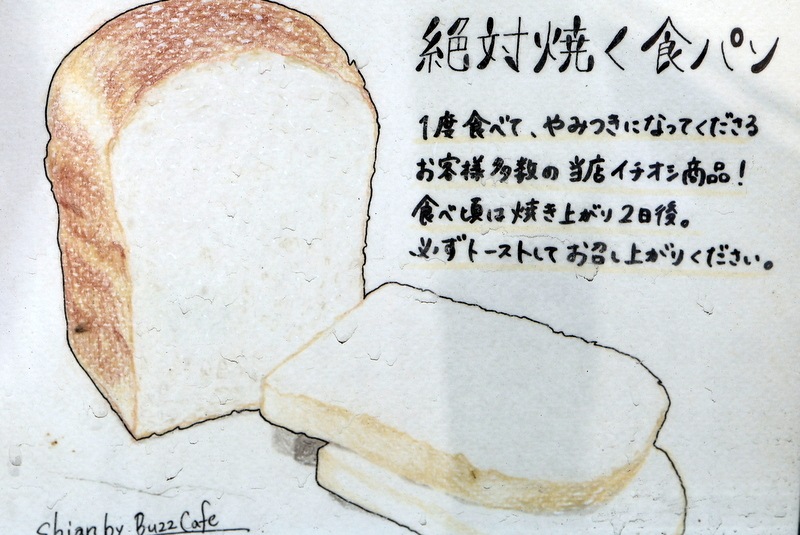 絶対焼く食パン
1度食べて、やみつきになってくださる
お客様多数の当店イチオシ商品！
食べ頃は焼き上がり2日後。
必ずトーストしてお召し上がりください。
Shian by Buzz Cafe